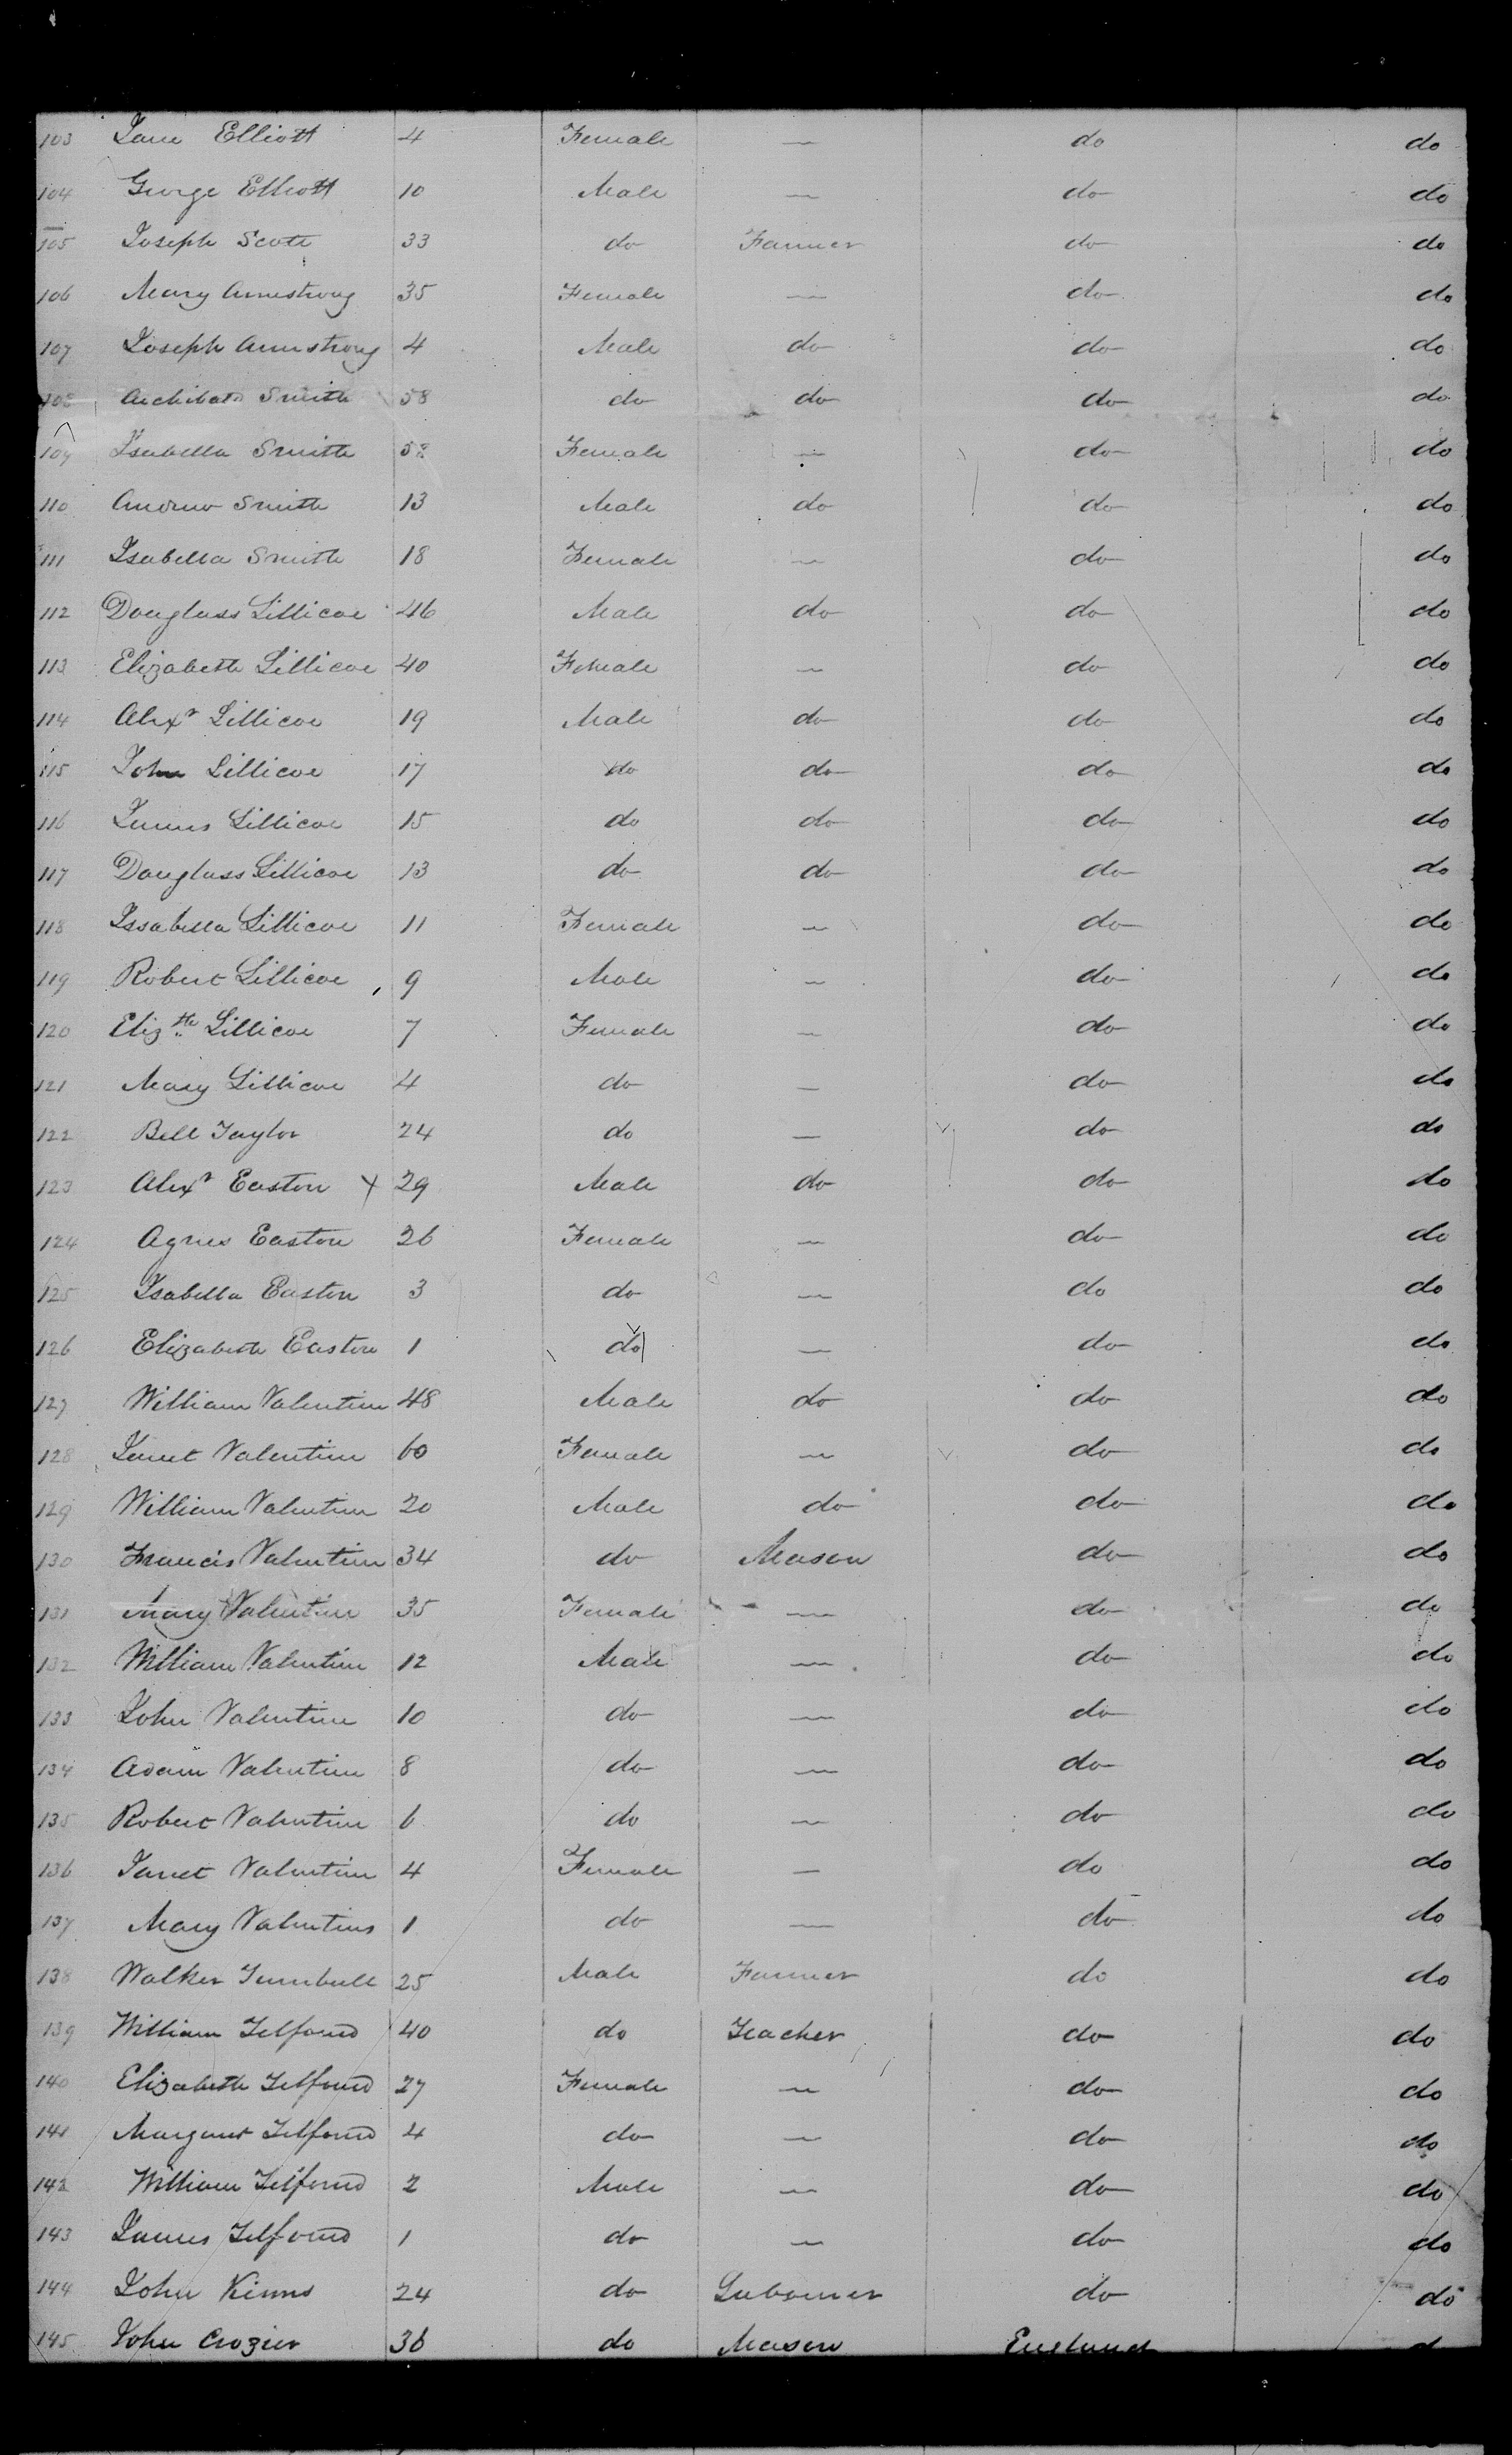 103 Jane Elliott 4 Female — do do
104 George Elliott 10 Male — do do
105 Joseph Scott 33 do Farmer do do
106 Mary Armstrong 35 Female — do do
107 Joseph Armstrong 4 Male do do do
108 Archibald Smith 58 do do do do
109 Isabella Smith 58 Female — do do
110 Andrew Smith 13 Male do do do
111 Isabella Smith 18 Female — do do
112 Douglass Lillicoe 46 Male do do do
113 Elizabeth Lillicoe 40 Female — do do
114 Alexr Lillicoe 19 Male do do do
115 John Lillicoe 17 do do do do
116 James Lillicoe 15 do do do do
117 Douglass Lillicoe 13 do do do do
118 Issabella Lillicoe 11 Female — do do
119 Robert Lillicoe 9 Male — do do
120 Elizth Lillicoe 7 Female — do do
121 Mary Lillicoe 4 do — do do
122 Bell Taylor 24 do — do do
123 Alexr Easton X 29 Male do do do
124 Agnes Easton 26 Female — do do
125 Isabella Easton 3 do — do do
126 Elizabeth Easton 1 do — do do
127 William Valentine 48 Male do do do
128 Janet Valentine 60 Female — do do
129 William Valentine 20 Male do do do
130 Francis Valentine 34 do Mason do do
131 Mary Valentine 35 Female — do do
132 William Valentine 12 Male — do do
133 John Valentine 10 do — do do
134 Adam Valentine 8 do — do do
135 Robert Valentine 6 do — do do
136 Janet Valentine 4 Female — do do
137 Mary Valentine 1 do — do do
138 Walker Turnbull 25 Male Farmer do do
139 William Telford 40 do Teacher do do
140 Elizabeth Telford 27 Female — do do
141 Margaret Telford 4 do — do do
142 William Telford 2 Male — do do
143 James Telford 1 do — do do
144 John 24 do Labourer do do
145 John Crozier 36 do Mason England do